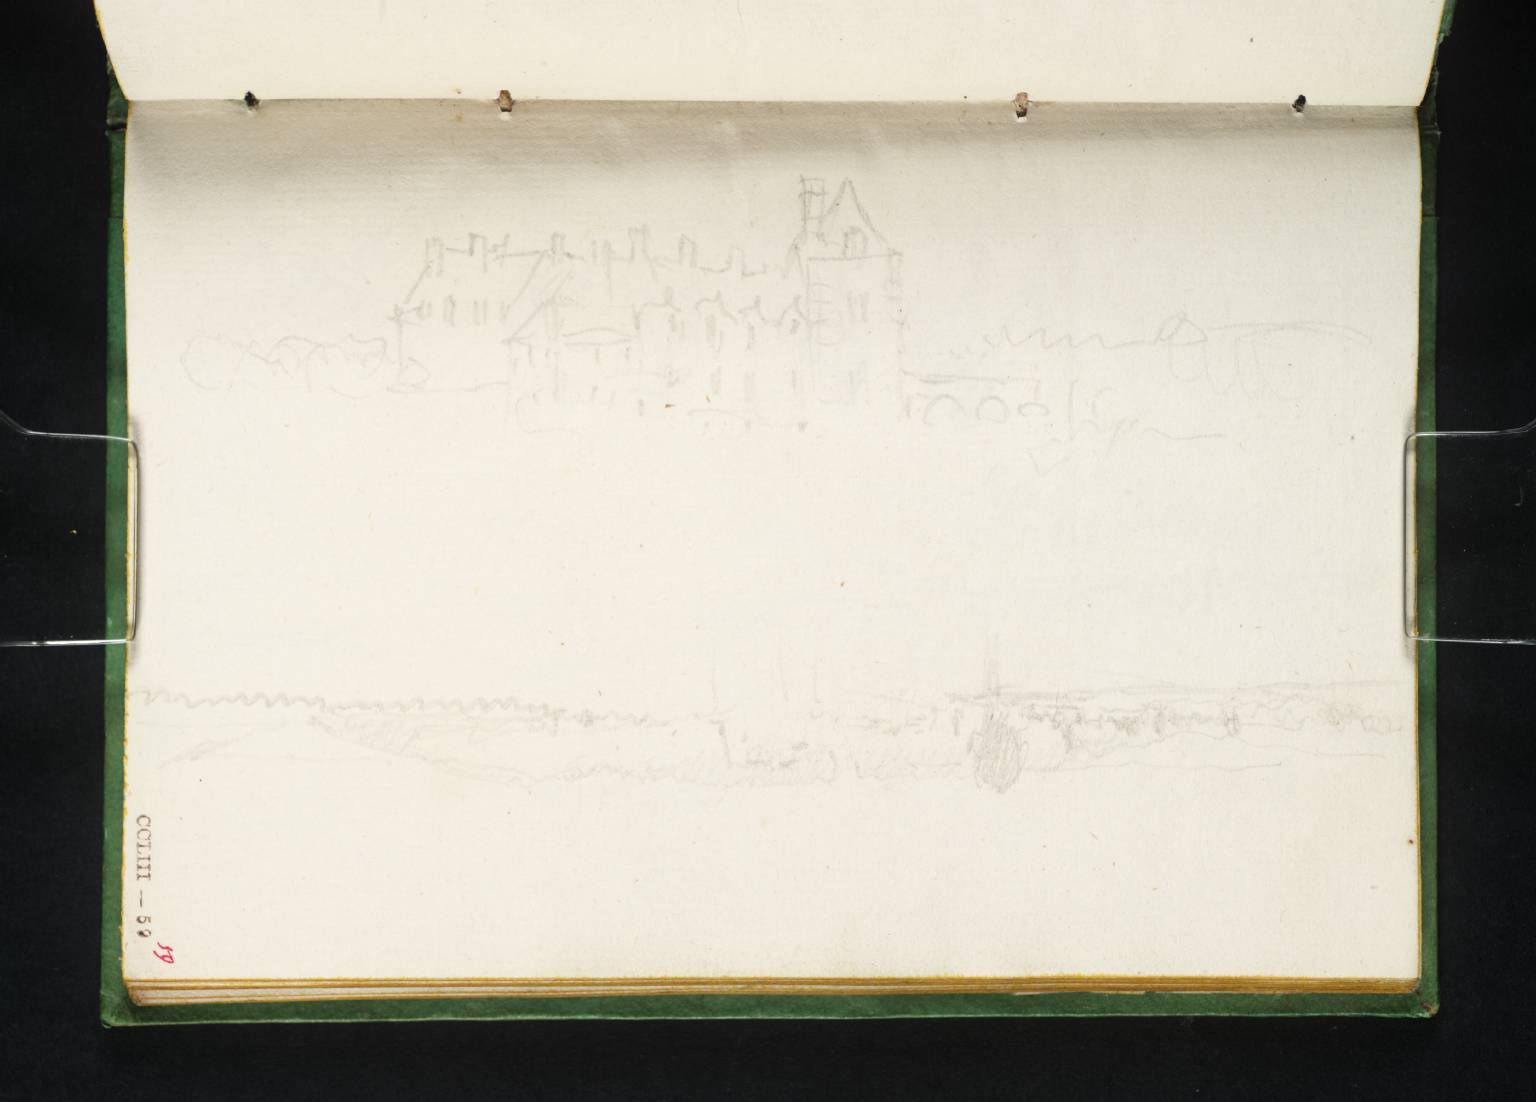 CCLIII — 59
59